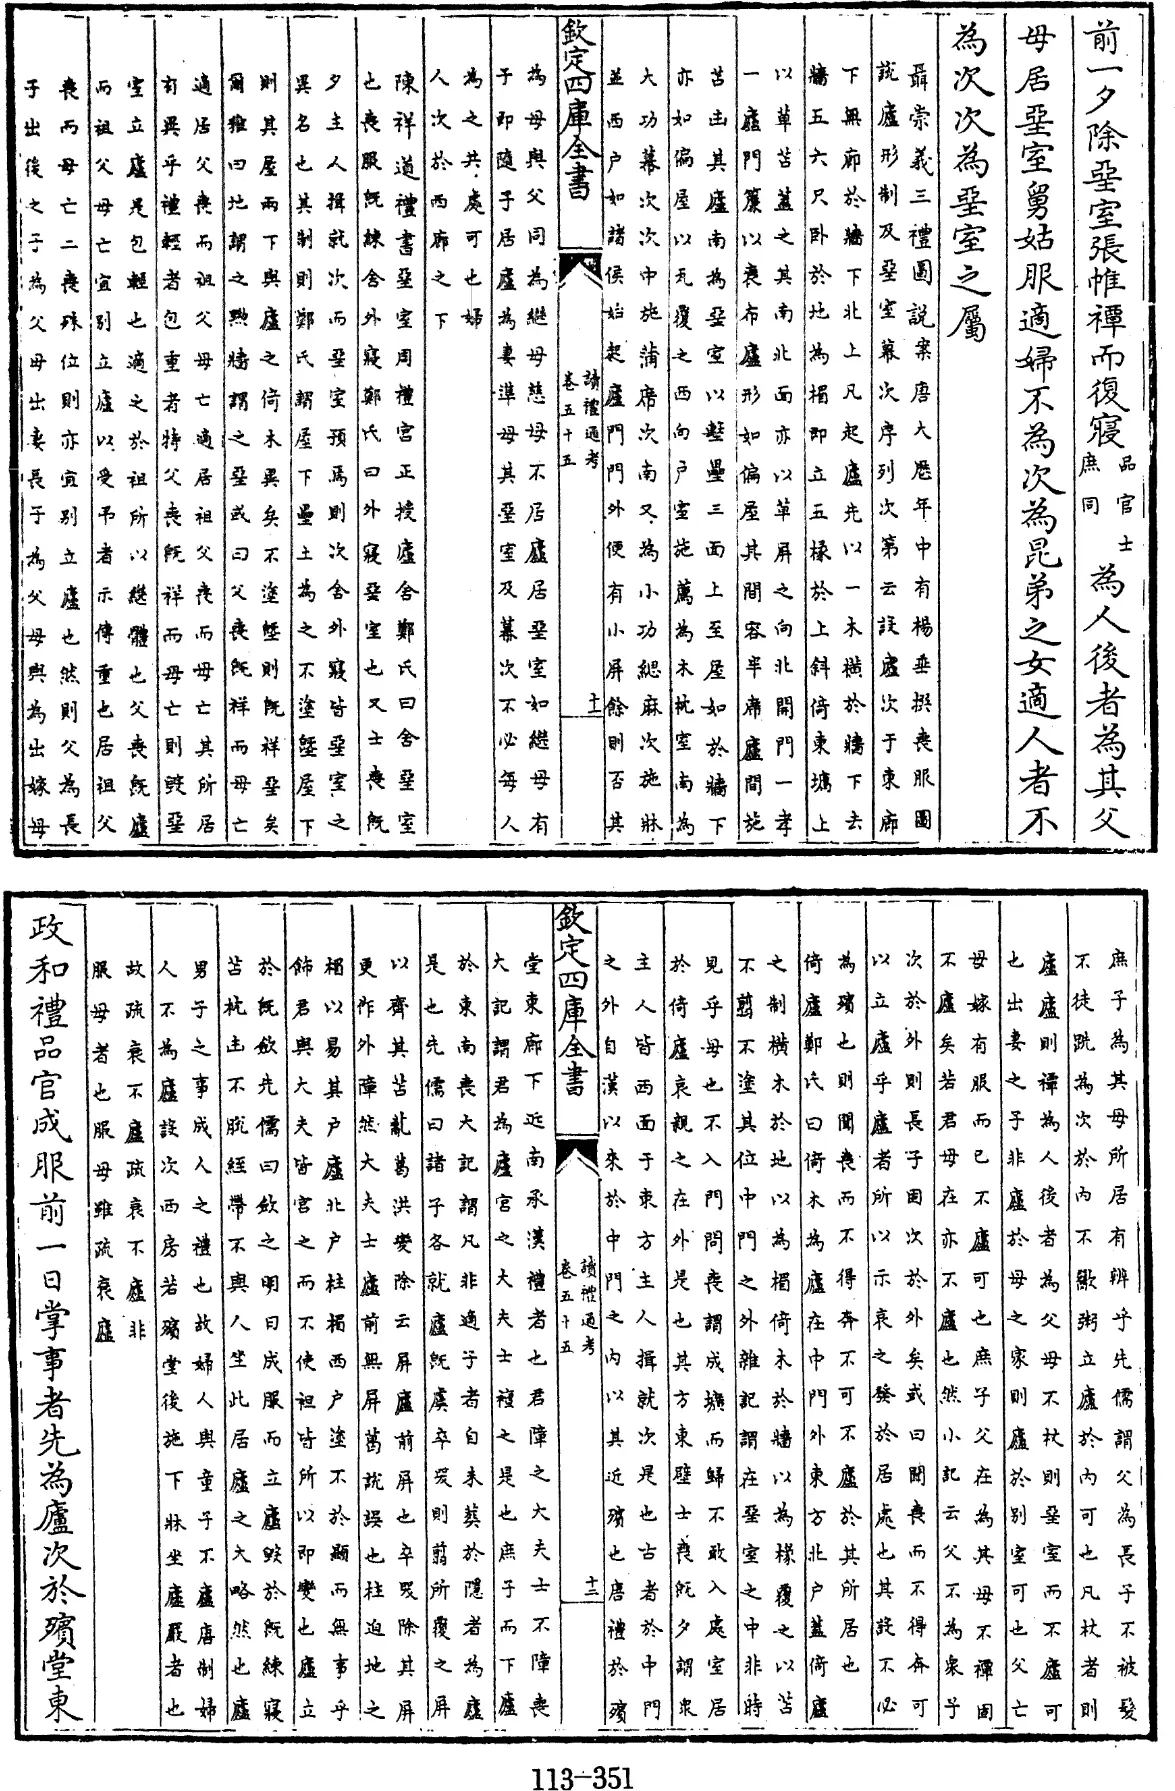 前一夕除堊室張帷禫而復寢品官士庶同為人後者為其父
母居堊室舅姑服適婦不為次為昆弟之女適人者不
為次次為堊室之屬
聶崇義三禮圖說案唐大厯年中有楊垂撰喪服圖
說廬形制及堊室幕次序列次第云設廬次于東廊
下無廊於牆下北上凡起廬先以一木橫於牆下去
牆五六尺卧於地為楣即立五椽於上斜倚東墉上
以草苫蓋之其南北面亦以草屏之向北開門一孝
一廬門簾以衰布廬形如偏屋其間容半席廬間施
苫凷其廬南為堊室以墼壘三面上至屋如於牆下
亦如偏屋以瓦覆之西向戶室施薦為木枕室南為
大功幕次次中施蒲席次南又為小功緦麻次施牀
並西户如諸侯始起廬門門外便有小屏餘則否其
欽定四庫全書
讀禮通考
卷五十五
十一
為母與父同為繼母慈母不居廬居堊室如繼母有
子即隨子居廬為妻準母其堊室及幕次不必每人
為之共處可也婦
人次於西廊之下
陳祥道禮書堊室周禮宮正授廬舍鄭氏曰舍堊室
也喪服旣練舍外寢鄭氏曰外寢堊室也又士喪旣
夕主人揖就次而堊室預焉則次舍外寢皆堊室之
異名也其制則鄭氏謂屋下壘土為之不塗塈屋下
則其屋兩下與廬之倚木異矣不塗塈則旣祥堊矣
爾雅曰地謂之黝牆謂之堊或曰父喪旣祥而母亡
適居父喪而祖父母亡適居祖父喪而母亡其所居
有異乎禮輕者包重者特父喪旣祥而母亡則毀堊
室立廬是包輕也適之於祖所以繼體也父喪旣廬
而祖父母亡宜别立廬以受弔者示傳重也居祖父
喪而母亡二喪殊位則亦宜别立廬也然則父為長
子出後之子為父母出妻長子為父母與為出嫁母
庶子為其母所居有辨乎先儒謂父為長子不被髪
不徒跣為次於內不歠粥立廬於內可也凡杖者則
廬廬則禫為人後者為父母不杖則堊室而不廬可
也出妻之子非廬於母之家則廬於别室可也父亡
母嫁有服而已不廬可也庶子父在為其母不禫固
不廬矣若君母在亦不廬也然小記云父不為衆子
次於外則長子固次於外矣或曰聞喪而不得奔可
以立廬乎廬者所以示哀之發於居處也其設不必
為殯也則聞喪而不得奔不可不廬於其所居也
倚廬鄭氏曰倚木為廬在中門外東方北户蓋倚廬
之制橫木於地以為楣倚木於牆以為椽覆之以苫
不翦不塗其位中門之外雜記謂在堊室之中非時
見乎母也不入門問喪謂成壙而歸不敢入處室居
於倚廬哀親之在外是也其方東壁士喪旣夕謂衆
主人皆西面于東方主人揖就次是也古者於中門
之外自漢以來於中門之內以其近殯也唐禮於殯
欽定四庫全書
讀禮通考
卷五十五
十二
堂東廊下近南承漢禮者也君障之大夫士不障喪
大記謂君為廬宮之大夫士襢之是也庶子而下廬
於東南喪大記謂凡非適子者自未葬於隱者為廬
是也先儒曰諸子各就廬旣虞卒哭則翦所覆之屏
以齊其苫亂葛洪變除云屏廬前屏也卒哭除其屏
更作外障然大夫士廬前無屏葛說誤也柱迫地之
楣以易其户廬北户柱楣西户塗不於顯而無事乎
飾君與大夫皆宮之而不使袒皆所以即變也廬立
於旣斂先儒曰斂之明日成服而立廬毀於旣練寢
苫枕凷不脫絰帶不與人坐此居廬之大略然也廬
男子之事成人之禮也故婦人與童子不廬唐制婦
人不為廬設次西房若殯堂後施下牀坐廬嚴者也
故疏衰不廬疏衰不廬非
服母者也服母雖疏衰廬
政和禮品官成服前一日掌事者先為廬次於殯堂東
113-351